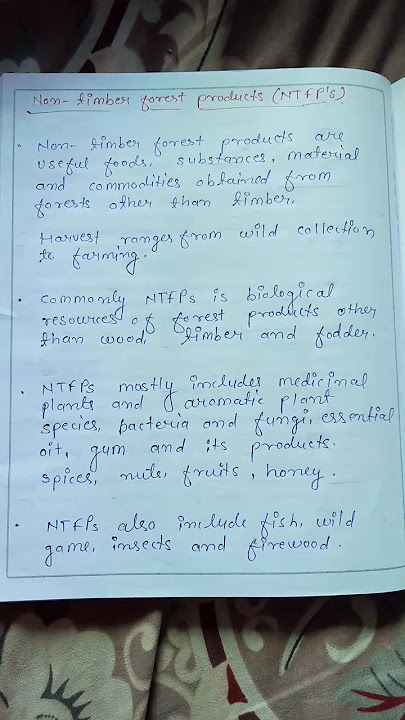 Non-timber forest products (NTFP's)
• Non-timber forest products are
useful foods, substances, material
and commodities obtained from
forests other than timber.
Harvest ranges from wild collection
to farming.
• Commonly NTFPs is biological
resources of forest products other
than wood, timber and fodder.
• NTFPs mostly includes medicinal
plants and aromatic plant
species, bacteria and fungi, essential
oil, gum and its products.
spices, nuts, fruits, honey.
• NTFPs also include fish, wild
game, insects and firewood.